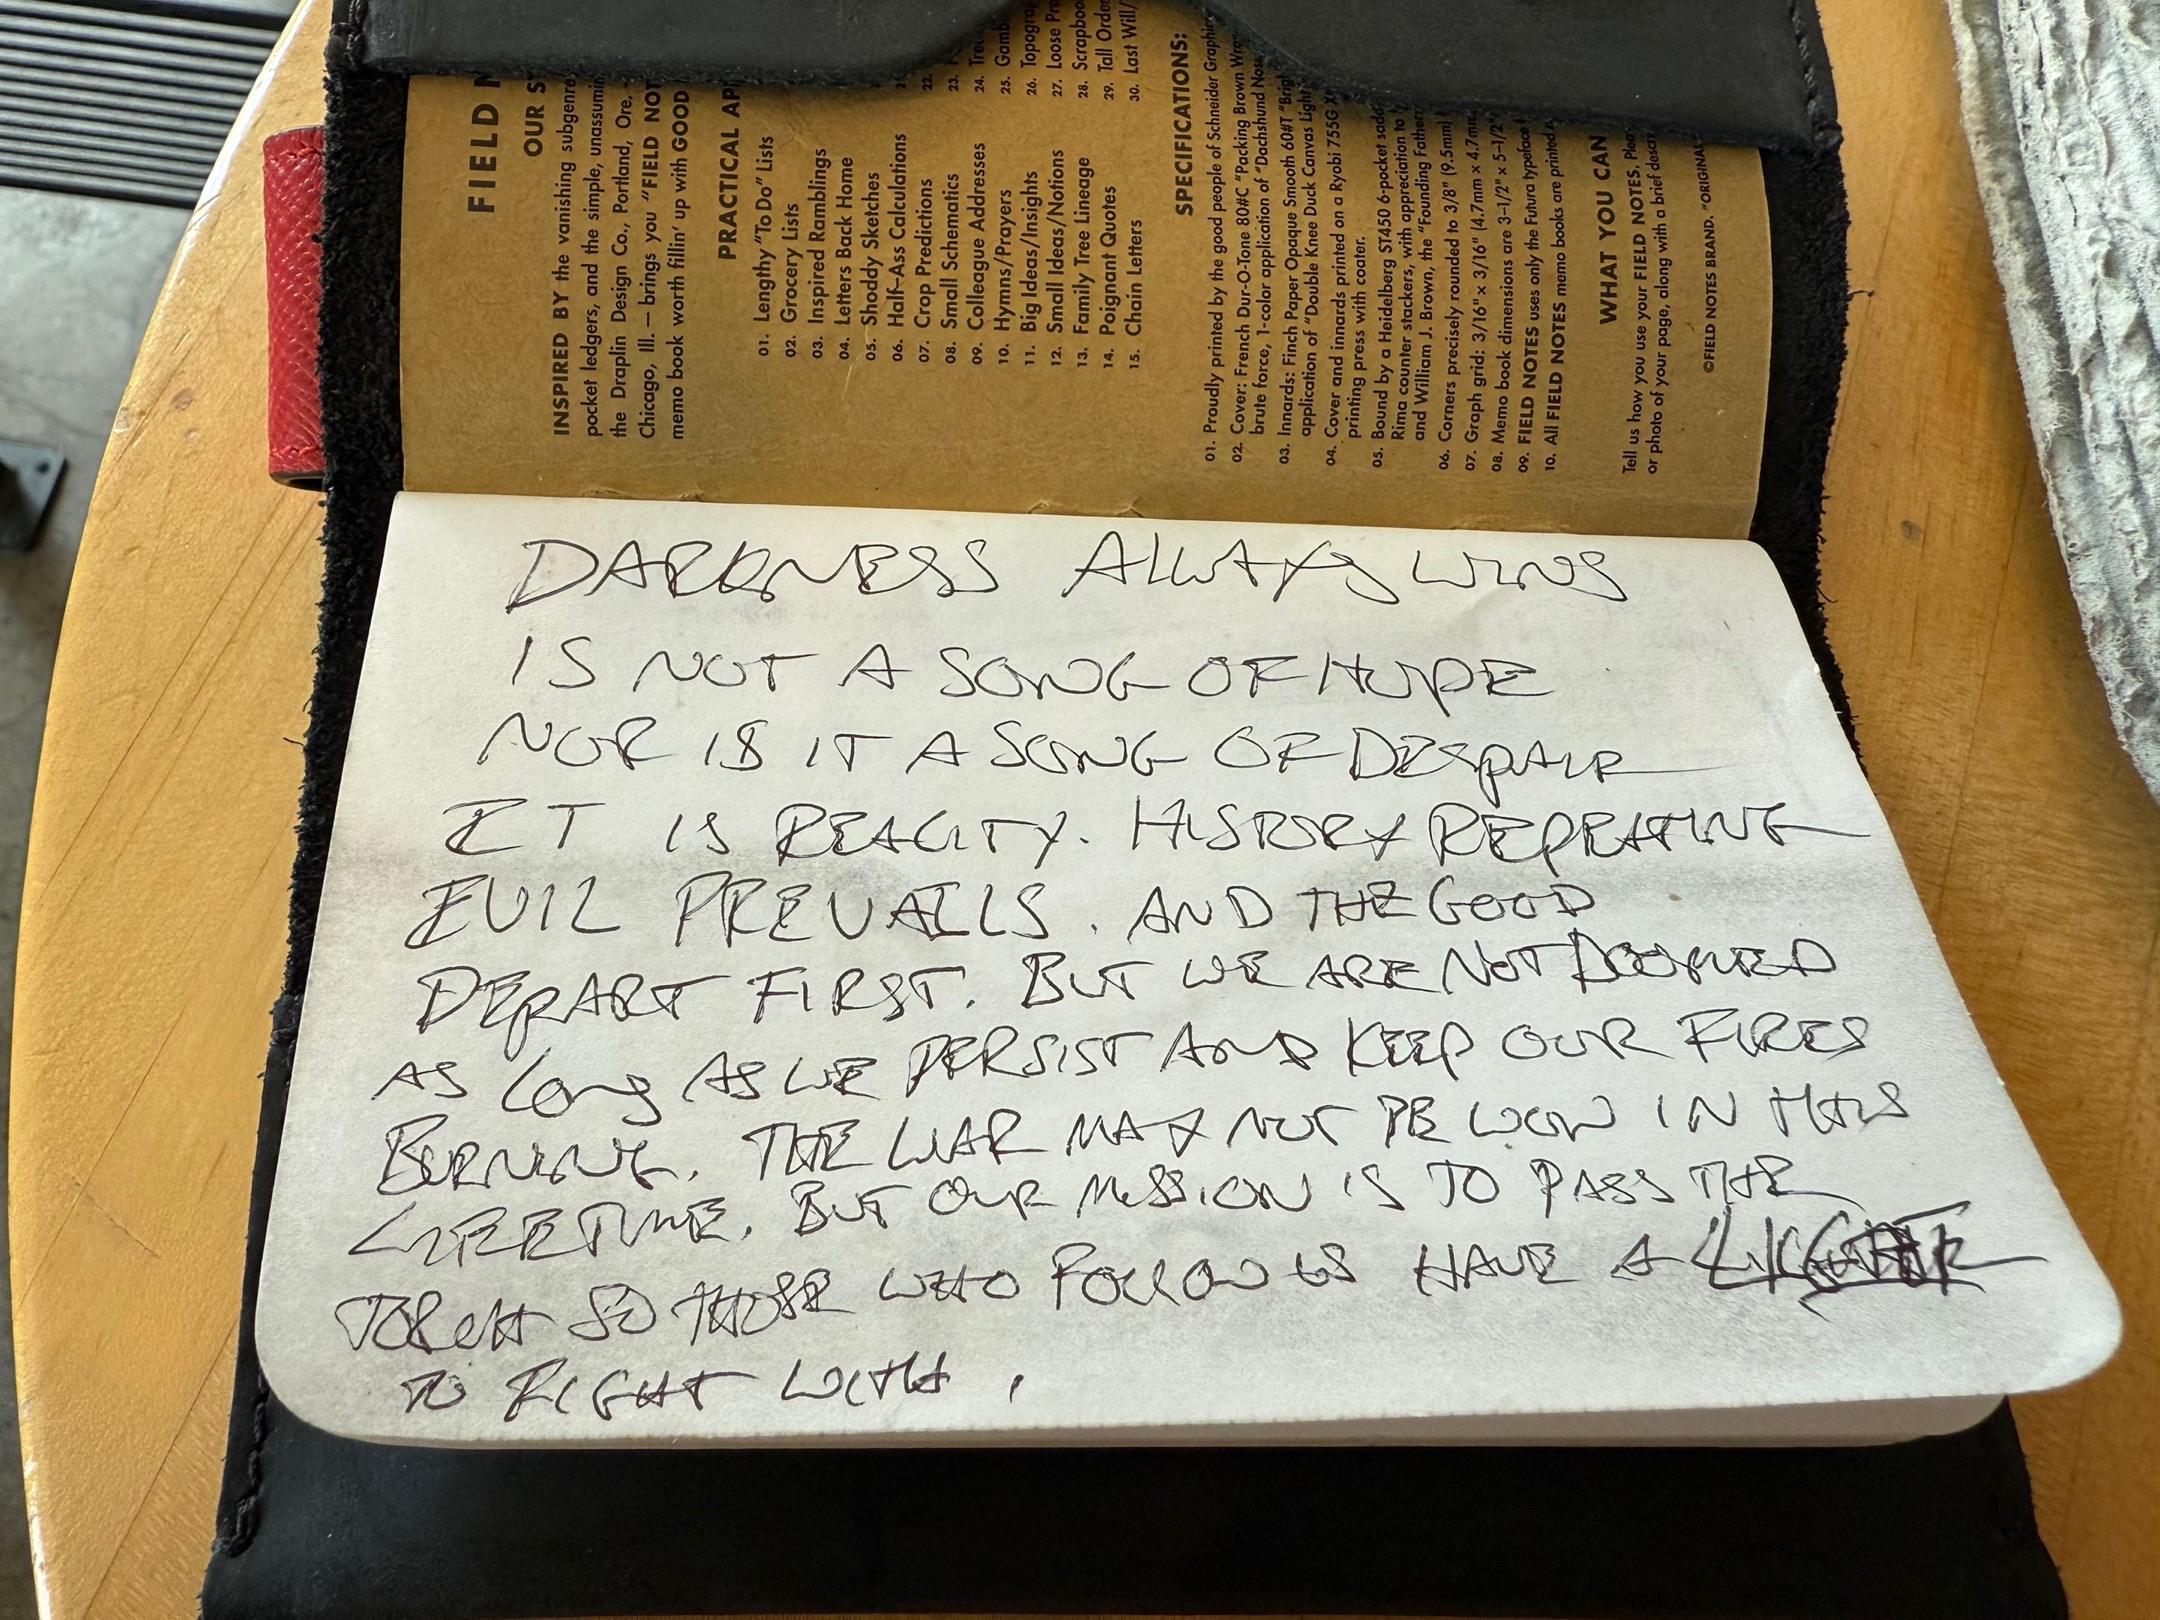 FIELD N
OUR S
INSPIRED BY the vanishing subgenre
pocket ledgers, and the simple, unassumin
the Draplin Design Co., Portland, Ore.,
Chicago, Ill. — brings you "FIELD NOT
memo book worth fillin' up with GOOD
PRACTICAL AP
01. Lengthy "To Do" Lists
02. Grocery Lists
03. Inspired Ramblings
04. Letters Back Home
05. Shoddy Sketches
06. Half-Ass Calculations
07. Crop Predictions
08. Small Schematics
09. Colleague Addresses
10. Hymns/Prayers
11. Big Ideas/Insights
12. Small Ideas/Notions
13. Family Tree Lineage
14. Poignant Quotes
15. Chain Letters
22.
23.
24. Tre
25. Gamb
26. Topogra
27. Loose Pr
28. Scrapboo
29. Tall Orde
30. Last Will/
SPECIFICATIONS:
01. Proudly printed by the good people of Schneider Graphic
02. Cover: French Dur-O-Tone 80#C "Packing Brown Wra
brute force, 1-color application of "Dachshund Nos
03. Innards: Finch Paper Opaque Smooth 60#T "Brig
application of "Double Knee Duck Canvas Light
04. Cover and innards printed on a Ryobi 755G X
printing press with coater.
05. Bound by a Heidelberg ST450 6-pocket sadd
Rima counter stackers, with appreciation to
and William J. Brown, the "Founding Father
06. Corners precisely rounded to 3/8" (9.5mm)
07. Graph grid: 3/16" x 3/16" (4.7mm x 4.7mm
08. Memo book dimensions are 3-1/2" x 5-1/2"
09. FIELD NOTES uses only the Futura typeface
10. All FIELD NOTES memo books are printed
WHAT YOU CAN
Tell us how you use your FIELD NOTES. Plea
or photo of your page, along with a brief descr
©FIELD NOTES BRAND. "ORIGINAL
DARKNESS ALWAYS WINS
IS NOT A SONG OF HOPE
NOR IS IT A SONG OF DESPAIR
IT IS REALITY. HISTORY REPEATING
EVIL PREVAILS. AND THE GOOD
DEPART FIRST. BUT WE ARE NOT DOOMED
AS LONG AS WE PERSIST AND KEEP OUR FIRES
BURNING. THE WAR MAY NOT BE WON IN THIS
LIFETIME. BUT OUR MISSION IS TO PASS THE
TORCH SO THOSE WHO FOLLOW US HAVE A
TO FIGHT WITH.